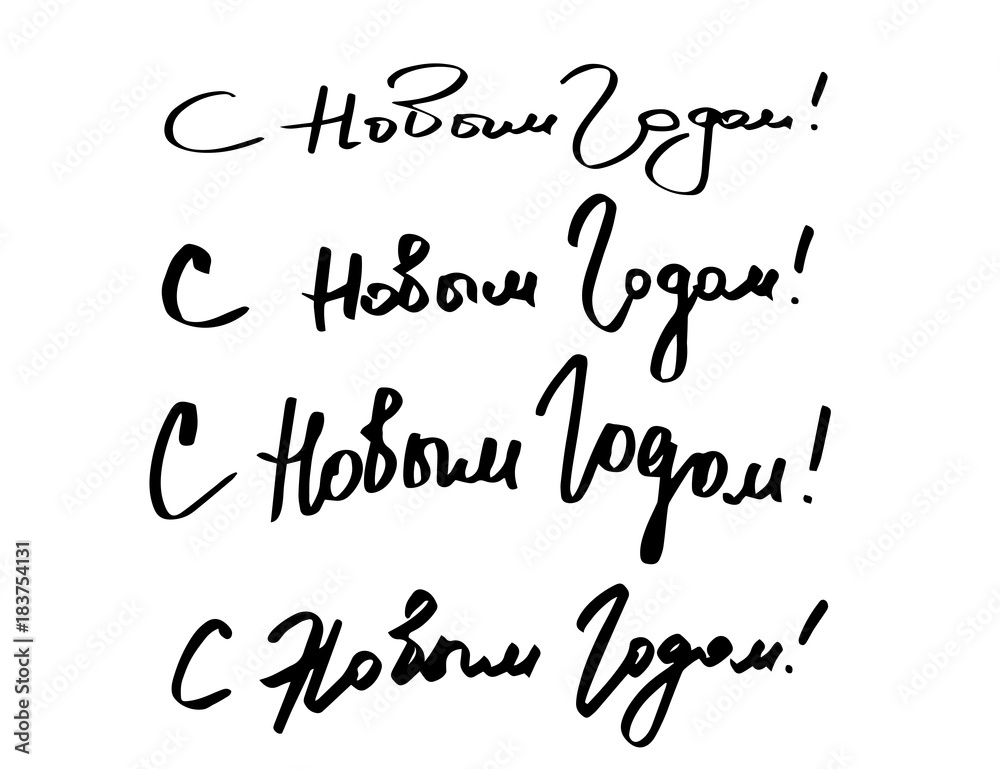 С Новым Годом!
С Новым Годом!
С Новым Годом!
С Новым Годом!
Adobe Stock | #183754131